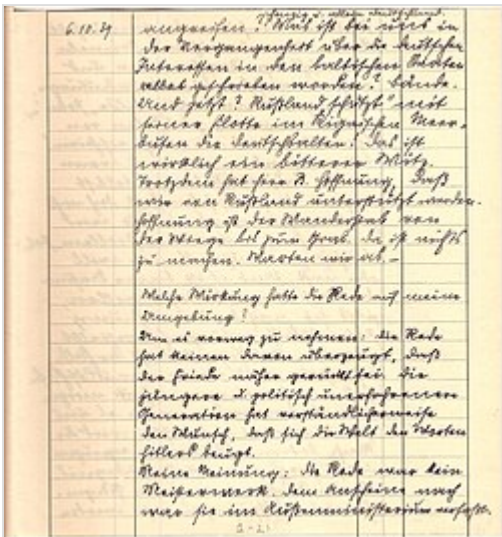 6.10.39
einzig u. allein Deutschland.
angreifen? Was ist bei uns in
der Vergangenheit über die deutschen
Interessen in den baltischen Staaten
alles geschrieben worden? Bände.
Und jetzt? Rußland „schützt" mit
seiner Flotte im Rigaischen Meer-
busen die Deutschbalten! Das ist
wirklich ein bitterer Witz.
Trotzdem hat Herr B. Hoffnung, daß
wir von Rußland unterstützt werden.
Hoffnung ist der Wanderstab von
der Wiege bis zum Grab. Da ist nichts
zu machen. Warten wir ab. –
Welche Wirkung hatte die Rede auf meine
Umgebung?
Um es vorweg zu nehmen: die Rede
hat keinen davon überzeugt, daß
der Friede näher gerückt sei. Die
jüngere u. politisch unerfahrenere
Generation hat verständlicherweise
den Wunsch, daß sich die Welt den Worten
Hitlers beugt.
Meine Meinung: Die Rede war kein
Meisterwerk. Dem Anscheine nach
war sie im Außenministerium verfaßt.